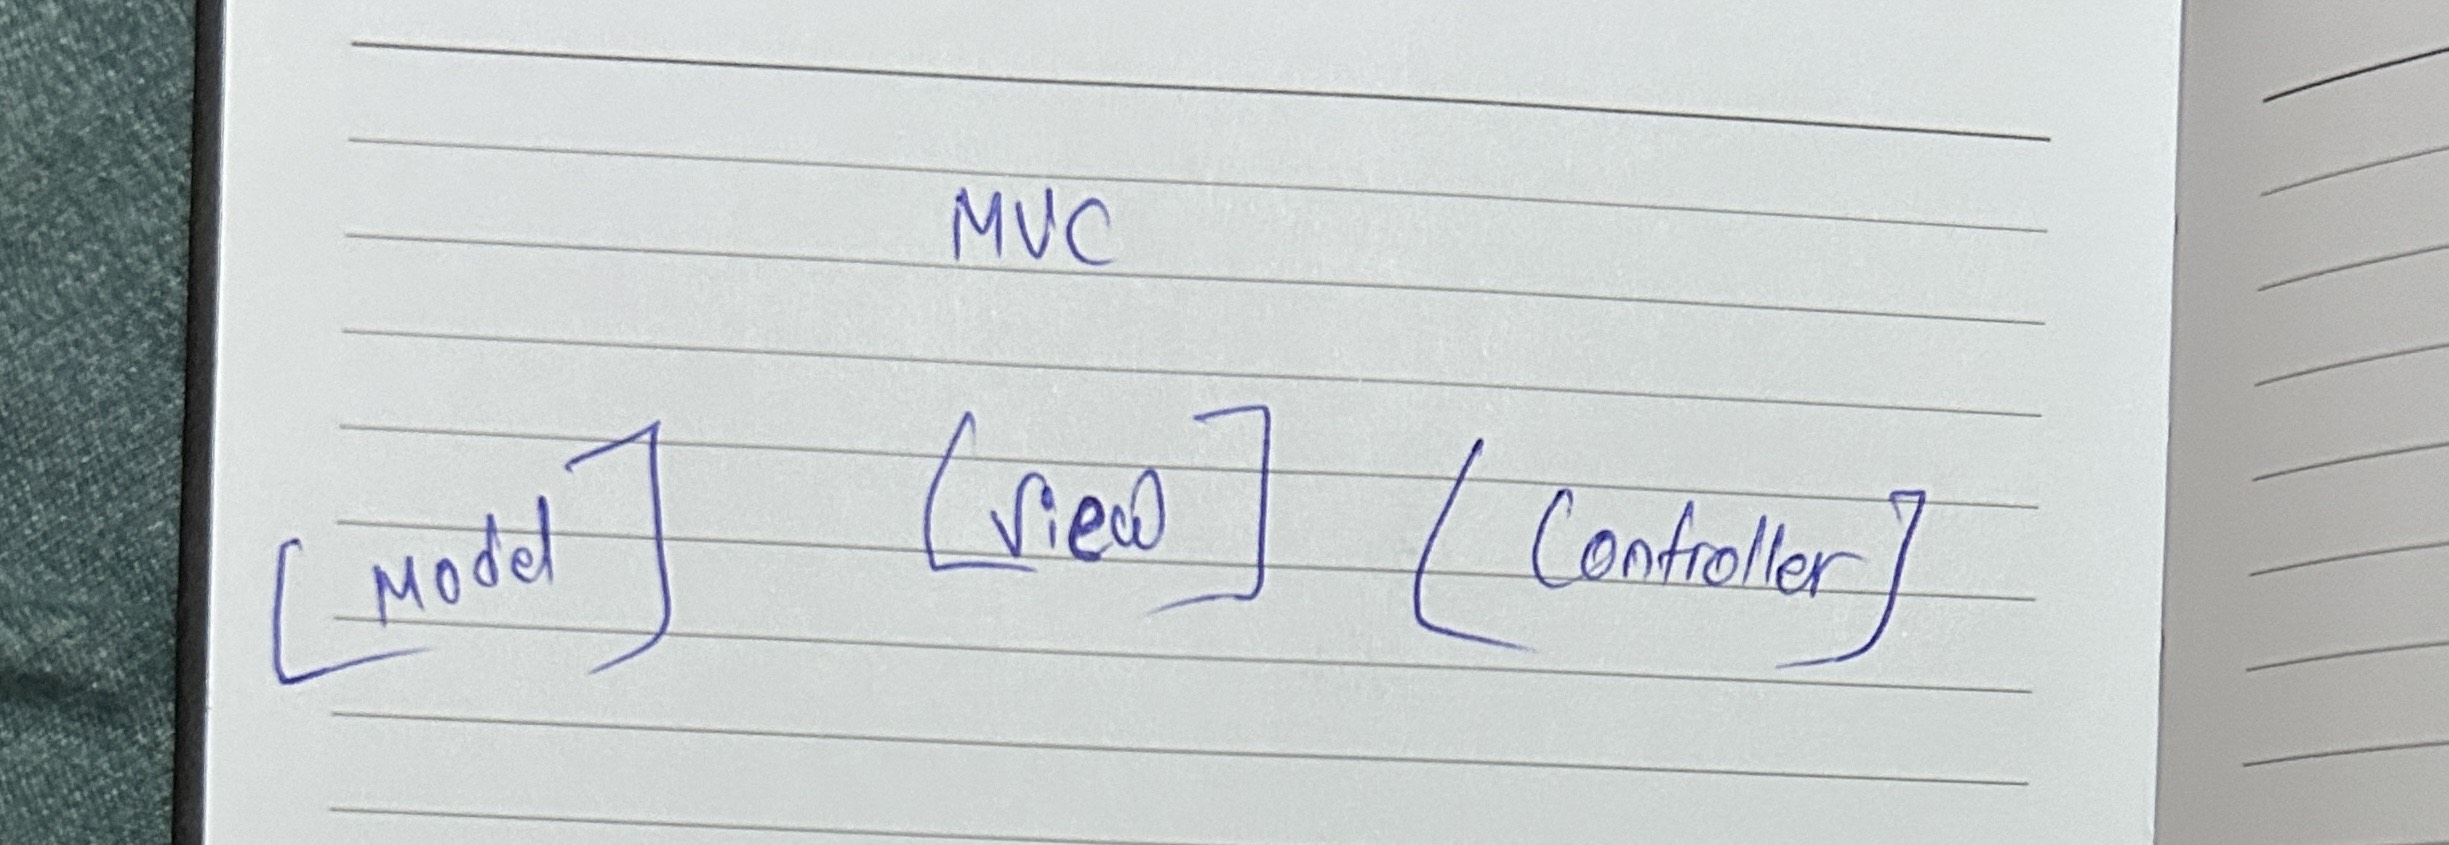 MVC
[Model] [View] [Controller]